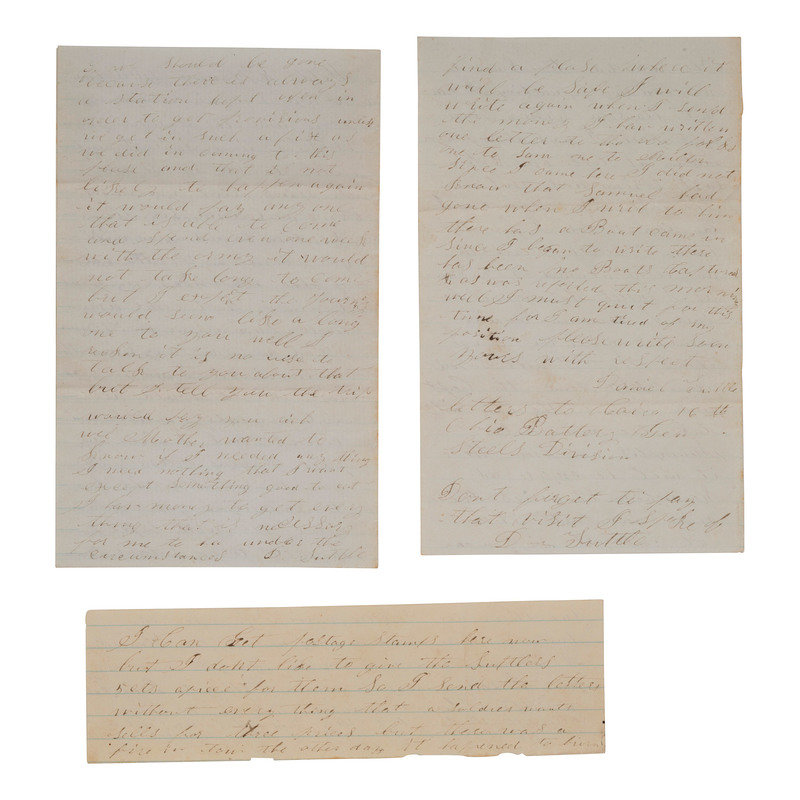 should be gone
because there is always
a station kept open in
order to get provisions unless
we get in such a fix as
we did in coming to this
place and that is not
likely to happen again
it would pay any one
that is able to come
and spend even one week
with the army it would
not take long to come
but I expect the
would seem like a long
one to you well I
reckon it is no use to
talk to you about that
but I tell you the trip
would pay you
well Mother wanted to
know if I needed any thing
I need nothing that I want
except something good to eat
I hav money to get every
thing that is necessary
for me to under the
circumstances D Suttle
find a place where it
will be save I will
write again when I send
the money I hav written
one letter to
one to Sam one to
since I came here I did not
know that Samuel had
gone when I writ to him
there has a Boat came in
since I began to write there
has been no Boats captured
as was reported this morning
well I must quit for this
time for I am tired of my
position please write soon
yours with respect
Suttle
letters to 16th
Ohio Battery Gen
Steels Division
Dont forget to pay
that visit I spoke of
D Suttle
I Can Get postage stamps here now
but I dont like to give the Suttlers
5cts apiece for them So I send the letters
without every thing that a soldier wants
sells for three prices but there was a
fire in town the other day it hapened to burn